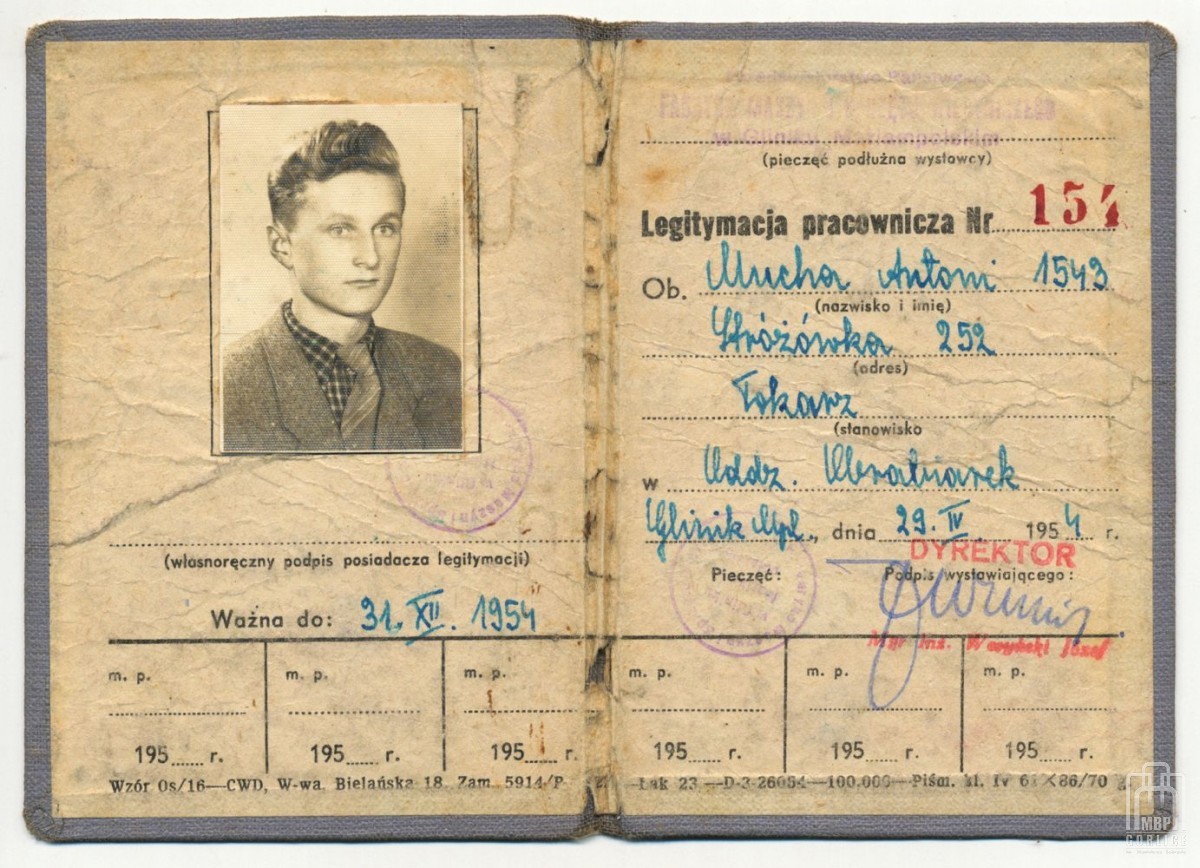 (własnoręczny podpis posiadacza legitymacji)
Ważna do: 31. XII. 1954
m. p. m. p. m. p.
195 r. 195 r. 195 r.
Wzór Os/16—CWD, W-wa. Bielańska 18. Zam. 5914/P
Przedsiębiorstwo Państwowe
w Gliniku Mariampolskim
(pieczęć podłużna wystowcy)
Legitymacja pracownicza Nr 154
Ob. Mucha Antoni 1543
(nazwisko i imię)
Stróżówka 252
(adres)
Tokarz
(stanowisko
w Oddz. Obrabiarek
Glinik Mpl., dnia 29. IV 1954 r.
DYREKTOR
Pieczęć: Podpis wystawiającego:
Mgr inż. Józef
m. p. m. p. m. p.
195 r. 195 r. 195 r.
Łak 23 —D-3-26054—100.000—Piśm. kl. IV 61×86/70
MBP
GORLICE